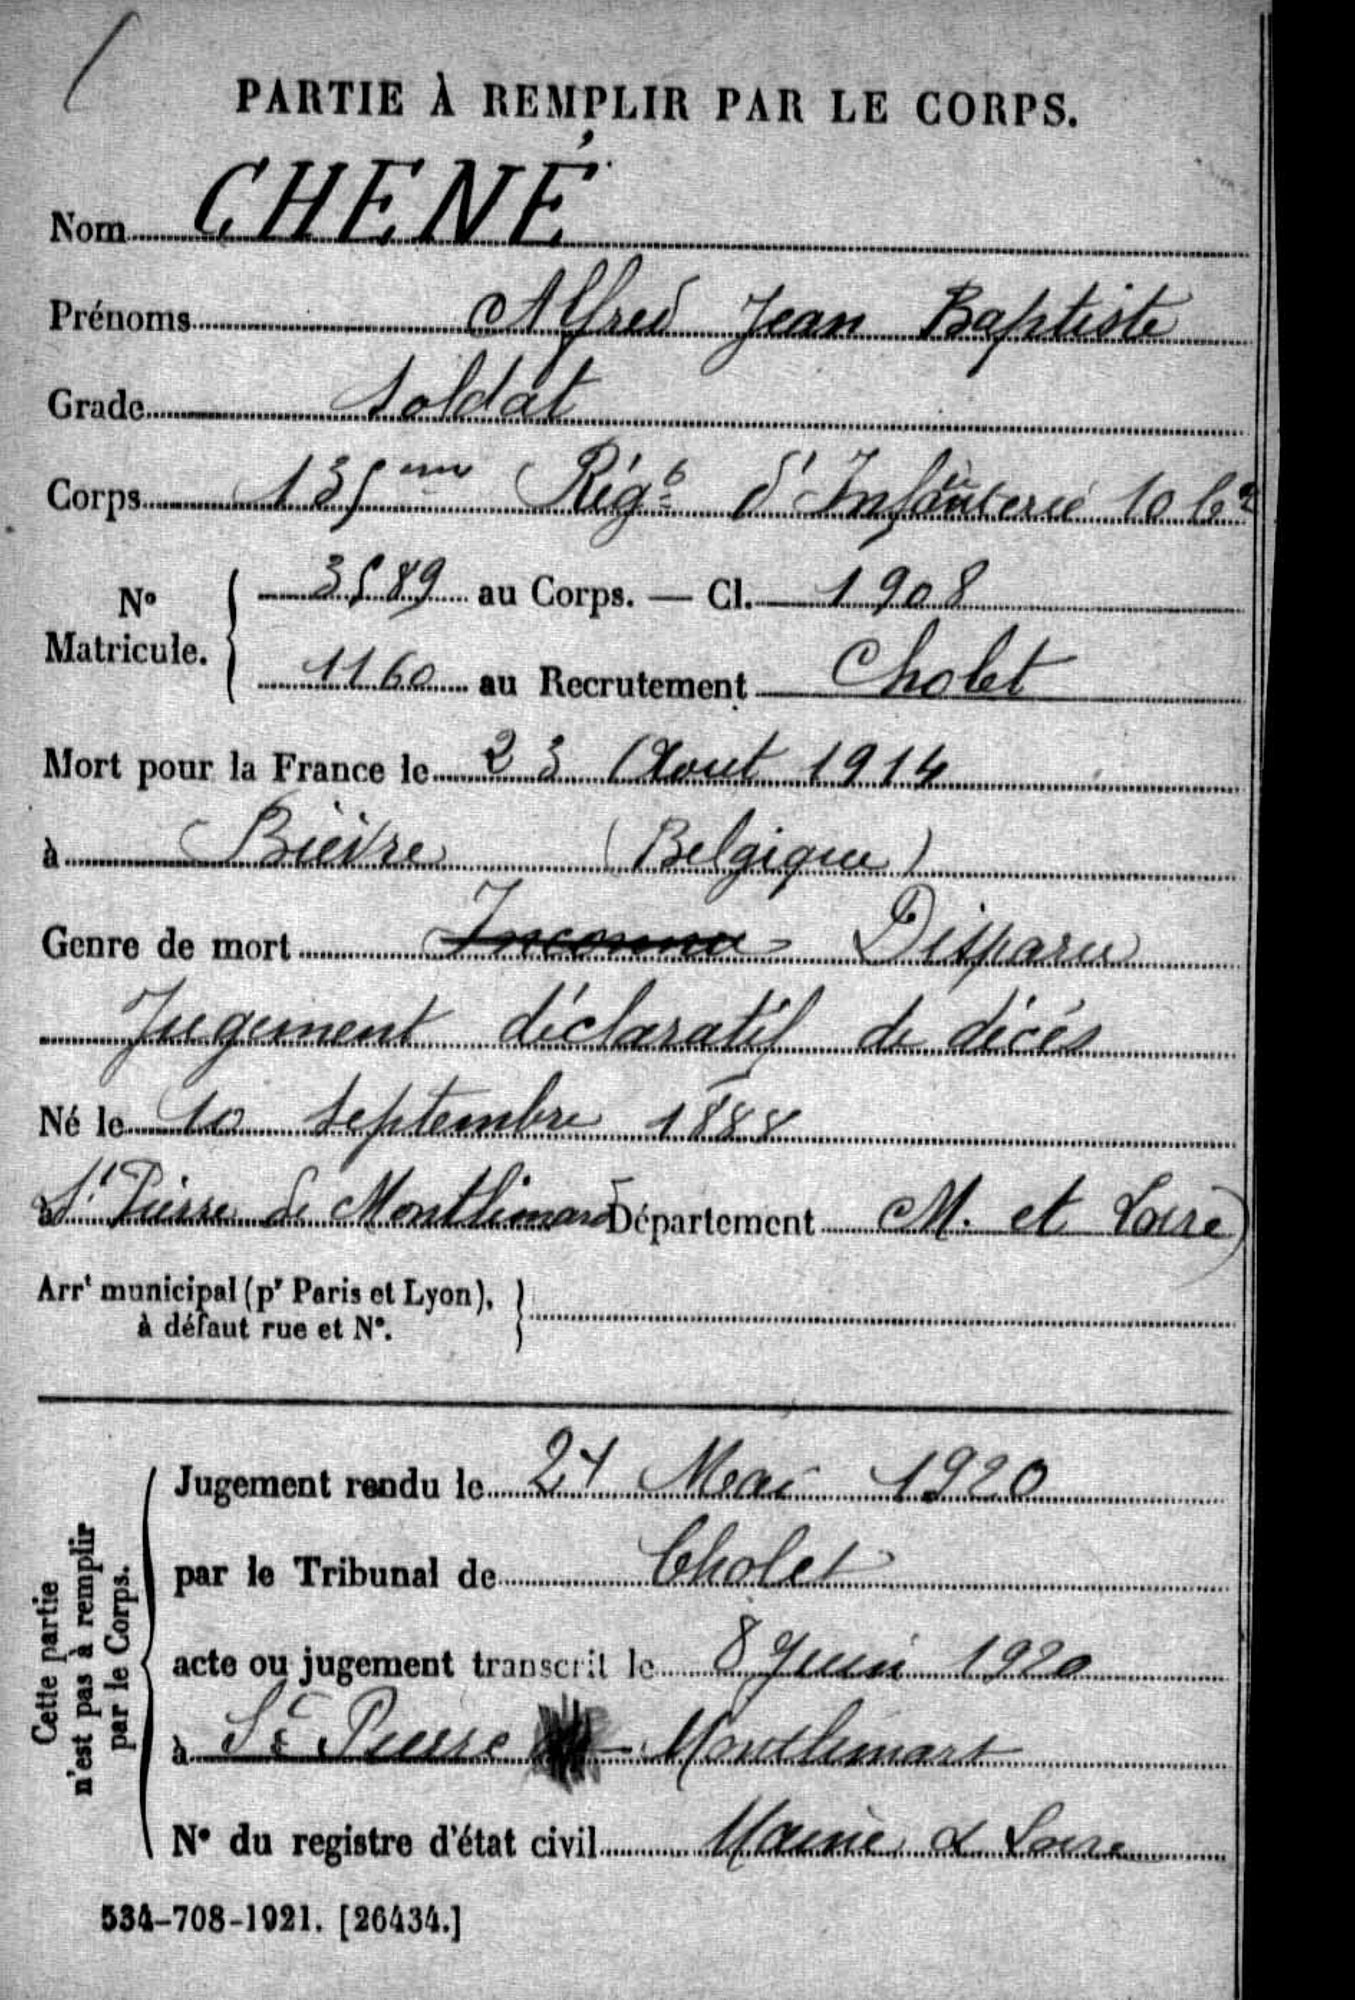 PARTIE À REMPLIR PAR LE CORPS.
Nom CHENÉ
Prénoms Alfred Jean Baptiste
Grade Soldat
Corps 135ème Régt d'Infanterie 10 Cie
N° Matricule. 3589 au Corps. — Cl. 1908
1160 au Recrutement Cholet
Mort pour la France le 23 Aout 1914
à Bièvre (Belgique)
Genre de mort Inconnu Disparu
Jugement déclaratif de décés
Né le 10 Septembre 1888
à St Pierre de Montlimard Département M. et Loire
Arrt municipal (pr Paris et Lyon),
à défaut rue et N°.
Cette partie
n'est pas à remplir
par le Corps.
Jugement rendu le 21 Mai 1920
par le Tribunal de Cholet
acte ou jugement transcrit le 8 Juin 1920
à St Pierre Montlimart
N° du registre d'état civil Maine & Loire
534-708-1921. [26434.]